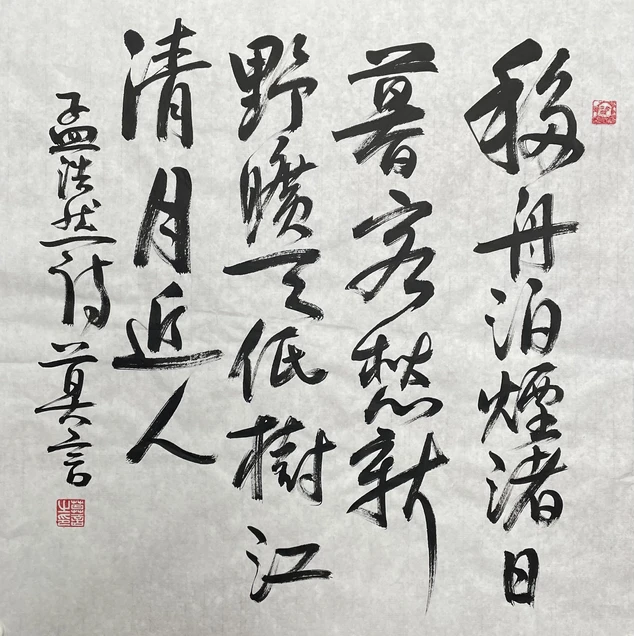 移舟泊煙渚日
暮客愁新
野曠天低樹江
清月近人
孟浩然詩莫言